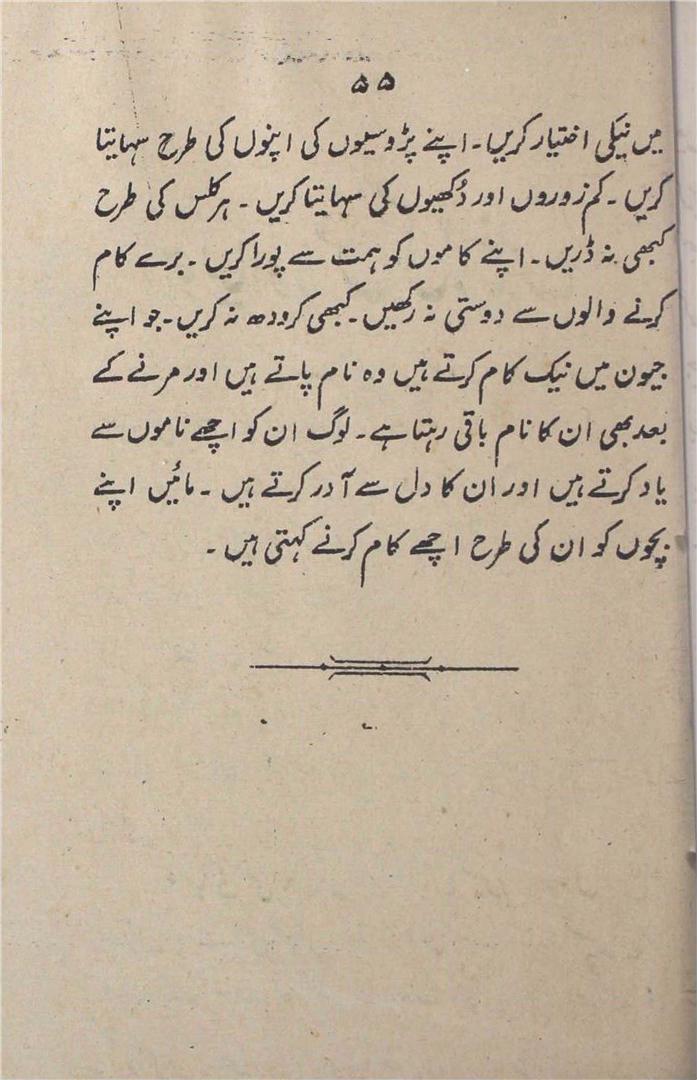 ۵۵
میں نیکی اختیار کریں۔ اپنے پڑوسیوں کی اپنوں کی طرح سہایتا
کریں۔ کم زوروں اور دُکھیوں کی سہایتا کریں۔ ہرکلس کی طرح
کبھی نہ ڈریں۔ اپنے کاموں کو ہمت سے پورا کریں۔ برے کام
کرنے والوں سے دوستی نہ رکھیں۔ کبھی کرودھ نہ کریں۔ جو اپنے
جیون میں نیک کام کرتے ہیں وہ نام پاتے ہیں اور مرنے کے
بعد بھی ان کا نام باقی رہتا ہے۔ لوگ ان کو اچھے ناموں سے
یاد کرتے ہیں اور ان کا دل سے آدر کرتے ہیں۔ مائیں اپنے
بچوں کو ان کی طرح اچھے کام کرنے کہتی ہیں۔